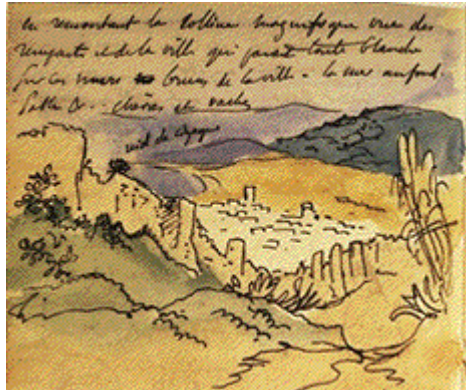 en remontant la colline magnifique vue des
remparts et de la ville qui parait toute blanche
sur les murs bruns de la ville - la mer au fond.
chèvres et vaches
nid de cigogne